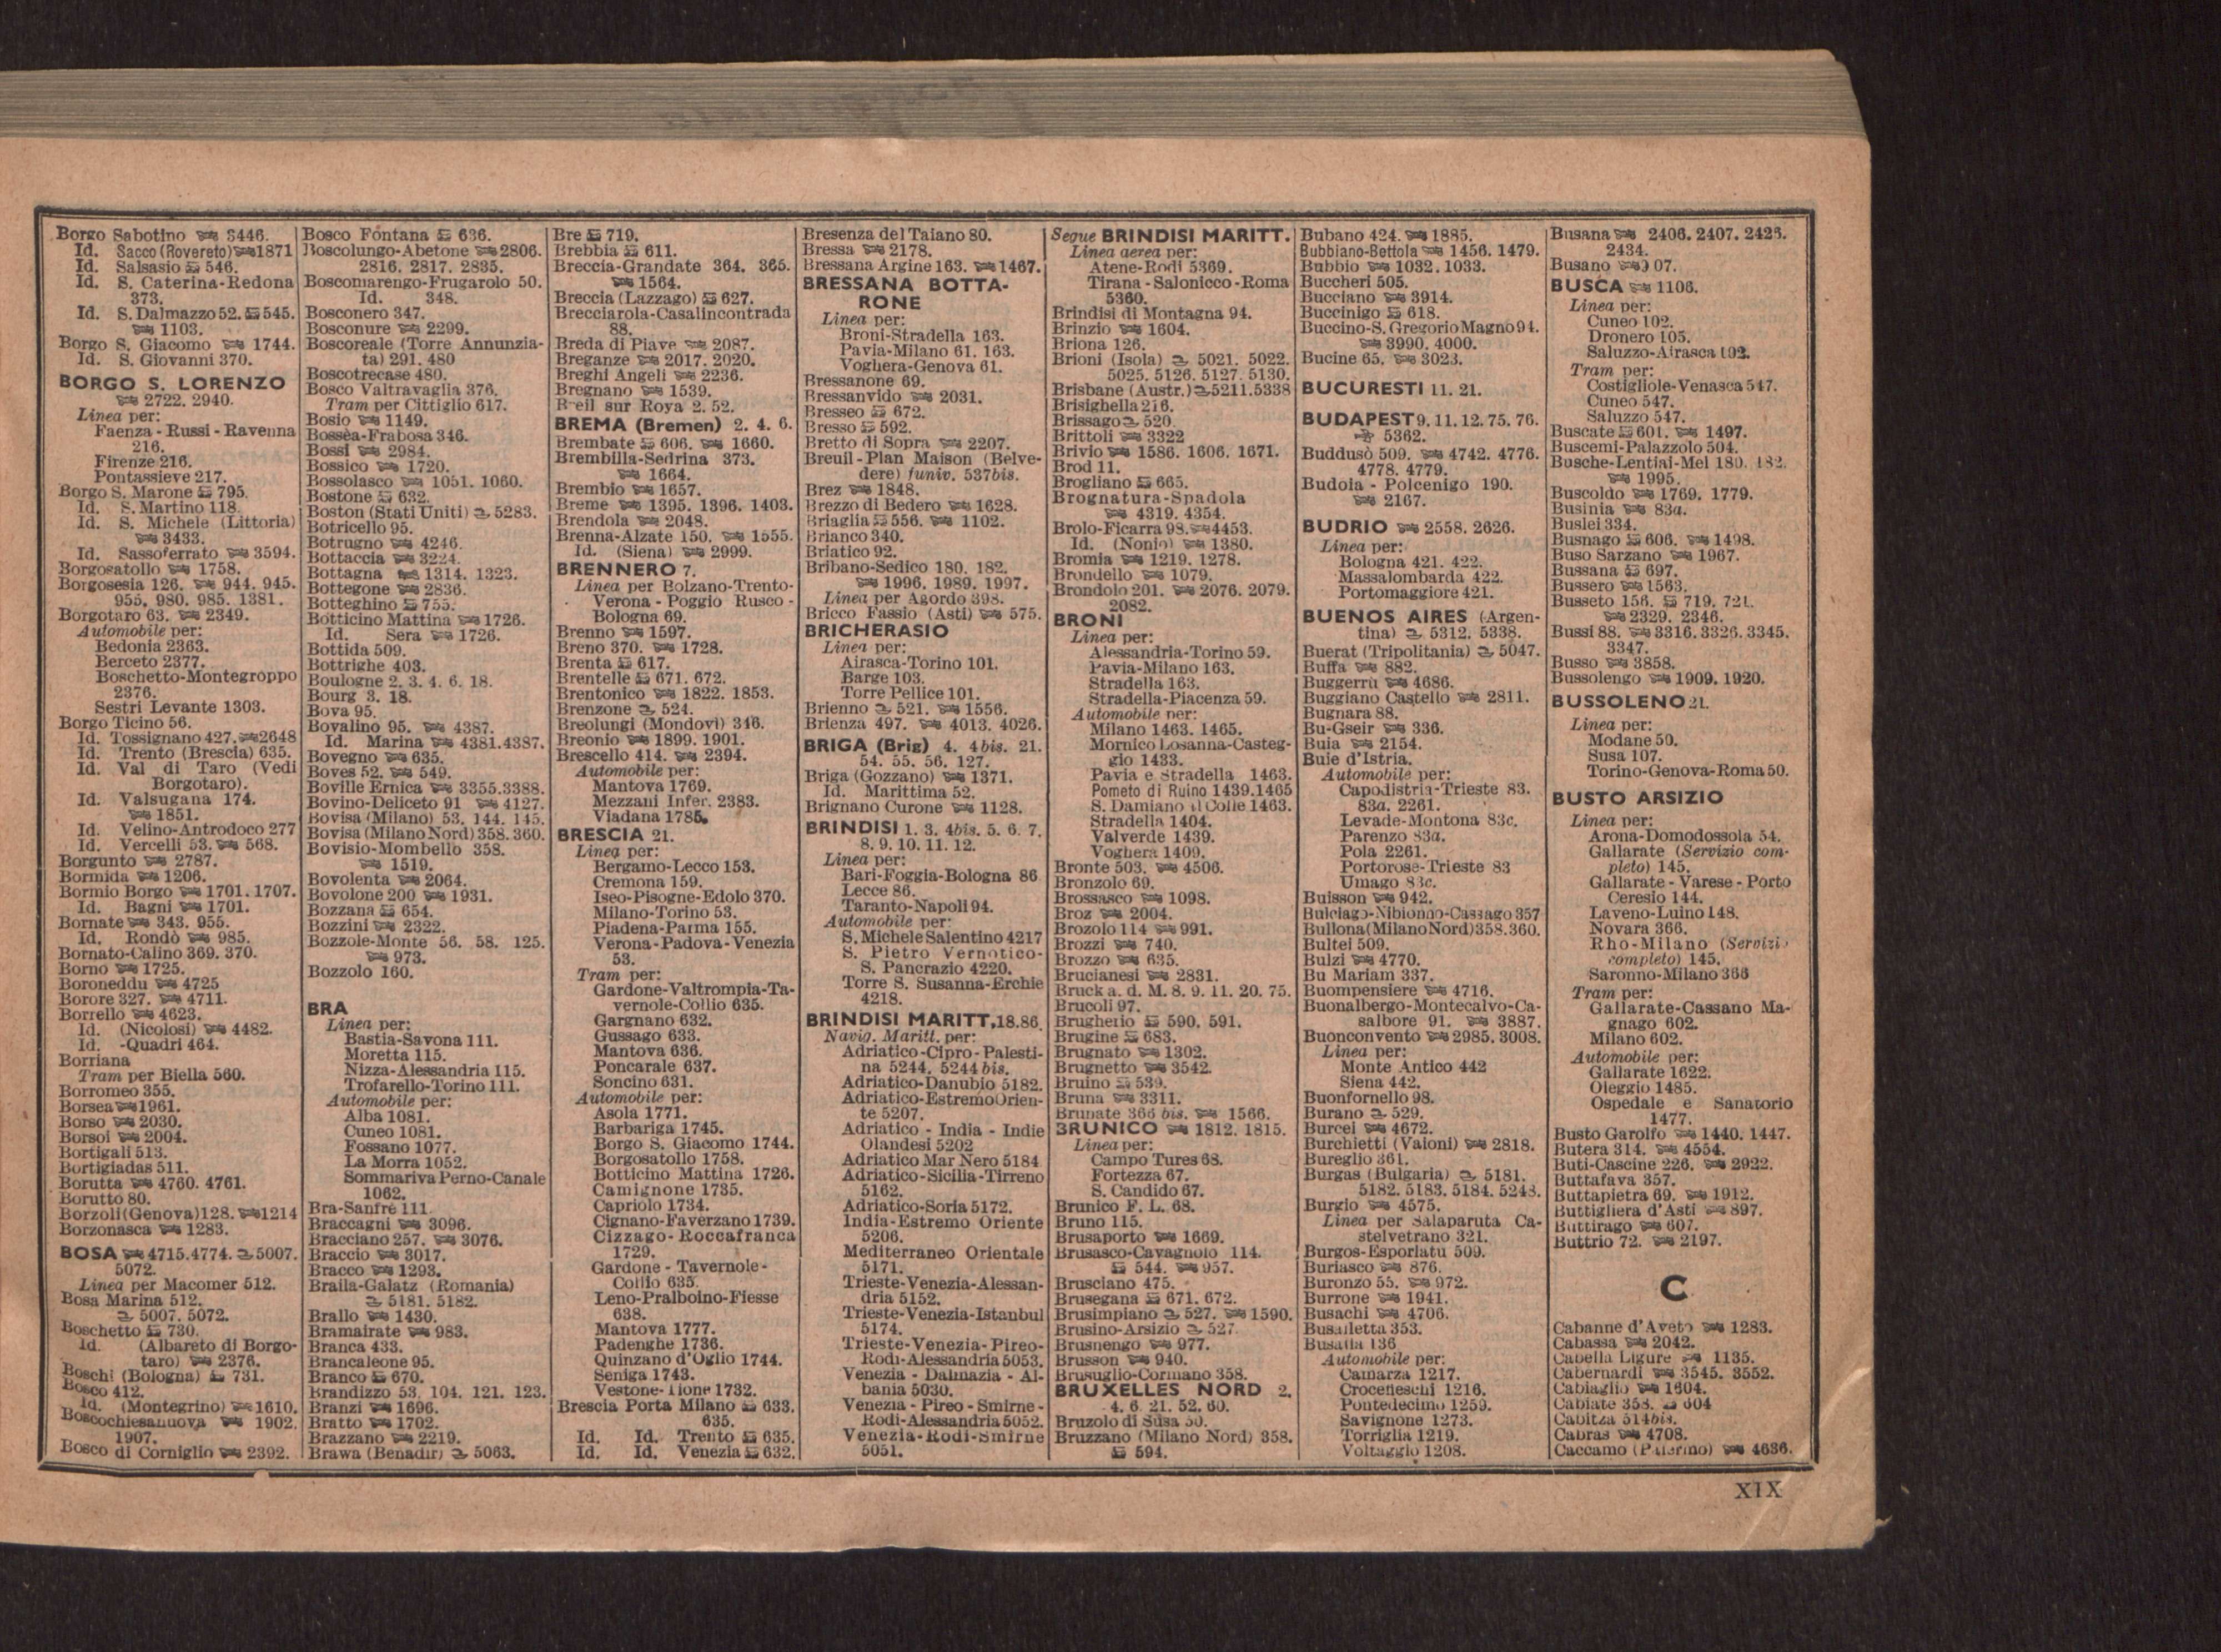 Borgo Sabotino 3446.
Id. Sacco (Rovereto) 1871
Id. Salsasio 546.
Id. S. Caterina-Redona
373.
Id. S. Dalmazzo 52. 545.
1103.
Borgo S. Giacomo 1744.
Id. S. Giovanni 370.
BORGO S. LORENZO
2722. 2940.
Linea per:
Faenza - Russi - Ravenna
216.
Firenze 216.
Pontassieve 217.
Borgo S. Marone 795.
Id. S. Martino 118.
Id. S. Michele (Littoria)
3433.
Id. Sassoferrato 3594.
Borgosatollo 1758.
Borgosesia 126. 944. 945.
955. 980. 985. 1381.
Borgotaro 63. 2349.
Automobile per:
Bedonia 2363.
Berceto 2377.
Boschetto-Montegroppo
2376.
Sestri Levante 1303.
Borgo Ticino 56.
Id. Tossignano 427. 2648
Id. Trento (Brescia) 635.
Id. Val di Taro (Vedi
Borgotaro).
Id. Valsugana 174.
1851.
Id. Velino-Antrodoco 277
Id. Vercelli 53. 568.
Borgunto 2787.
Bormida 1206.
Bormio Borgo 1701. 1707.
Id. Bagni 1701.
Bornate 343. 955.
Id. Rondò 985.
Bornato-Calino 369. 370.
Borno 1725.
Boroneddu 4725
Borore 327. 4711.
Borrello 4623.
Id. (Nicolosi) 4482.
Id. -Quadri 464.
Borriana
Tram per Biella 560.
Borromeo 355.
Borsea 1961.
Borso 2030.
Borsoi 2004.
Bortigali 513.
Bortigiadas 511.
Borutta 4760. 4761.
Borutto 80.
Borzoli (Genova) 128. 1214
Borzonasca 1283.
BOSA 4715. 4774. 5007.
5072.
Linea per Macomer 512.
Bosa Marina 512.
5007. 5072.
Boschetto 730.
Id. (Albareto di Borgo-
taro) 2376.
Boschi (Bologna) 731.
Bosco 412.
Id. (Montegrino) 1610.
Boscochiesanuova 1902.
1907.
Bosco di Corniglio 2392.
Bosco Fontana 636.
Boscolungo-Abetone 2806.
2816. 2817. 2835.
Boscomarengo-Frugarolo 50.
Id. 348.
Bosconero 347.
Bosconure 2299.
Boscoreale (Torre Annunzia-
ta) 291. 480
Boscotrecase 480.
Bosco Valtravaglia 376.
Tram per Cittiglio 617.
Bosio 1149.
Bossèa-Frabosa 346.
Bossi 2984.
Bossico 1720.
Bossolasco 1051. 1060.
Bostone 632.
Boston (Stati Uniti) 5283.
Botricello 95.
Botrugno 4246.
Bottaccia 3224.
Bottagna 1314. 1323.
Bottegone 2836.
Botteghino 755.
Botticino Mattina 1726.
Id. Sera 1726.
Bottida 509.
Bottrighe 403.
Boulogne 2. 3. 4. 6. 18.
Bourg 3. 18.
Bova 95.
Bovalino 95. 4387.
Id. Marina 4381. 4387.
Bovegno 635.
Boves 52. 549.
Boville Ernica 3355. 3388.
Bovino-Deliceto 91 4127.
Bovisa (Milano) 53. 144. 145.
Bovisa (Milano Nord) 358. 360.
Bovisio-Mombello 358.
1519.
Bovolenta 2064.
Bovolone 200 1931.
Bozzana 654.
Bozzini 2322.
Bozzole-Monte 56. 58. 125.
973.
Bozzolo 160.
BRA
Linea per:
Bastia-Savona 111.
Moretta 115.
Nizza-Alessandria 115.
Trofarello-Torino 111.
Automobile per:
Alba 1081.
Cuneo 1081.
Fossano 1077.
La Morra 1052.
Sommariva Perno-Canale
1062.
Bra-Sanfrè 111.
Braccagni 3096.
Bracciano 257. 3076.
Braccio 3017.
Bracco 1293.
Braila-Galatz (Romania)
5181. 5182.
Brallo 1430.
Bramairate 983.
Branca 433.
Brancaleone 95.
Branco 670.
Brandizzo 53. 104. 121. 123.
Branzi 1696.
Bratto 1702.
Brazzano 2219.
Brawa (Benadir) 5063.
Bre 719.
Brebbia 611.
Breccia-Grandate 364. 365.
1564.
Breccia (Lazzago) 627.
Brecciarola-Casalincontrada
88.
Breda di Piave 2087.
Breganze 2017. 2020.
Breghi Angeli 2236.
Bregnano 1539.
Breil sur Roya 2. 52.
BREMA (Bremen) 2. 4. 6.
Brembate 606. 1660.
Brembilla-Sedrina 373.
1664.
Brembio 1657.
Breme 1395. 1396. 1403.
Brendola 2048.
Brenna-Alzate 150. 1555.
Id. (Siena) 2999.
BRENNERO 7.
Linea per Bolzano-Trento-
Verona - Poggio Rusco -
Bologna 69.
Brenno 1597.
Breno 370. 1728.
Brenta 617.
Brentelle 671. 672.
Brentonico 1822. 1853.
Brenzone 524.
Breolungi (Mondovì) 346.
Breonio 1899. 1901.
Brescello 414. 2394.
Automobile per:
Mantova 1769.
Mezzani Infer. 2383.
Viadana 1785.
BRESCIA 21.
Linea per:
Bergamo-Lecco 153.
Cremona 159.
Iseo-Pisogne-Edolo 370.
Milano-Torino 53.
Piadena-Parma 155.
Verona-Padova-Venezia
53.
Tram per:
Gardone-Valtrompia-Ta-
vernole-Collio 635.
Gargnano 632.
Gussago 633.
Mantova 636.
Poncarale 637.
Soncino 631.
Automobile per:
Asola 1771.
Barbariga 1745.
Borgo S. Giacomo 1744.
Borgosatollo 1758.
Botticino Mattina 1726.
Camignone 1735.
Capriolo 1734.
Cignano-Faverzano 1739.
Cizzago - Roccafranca
1729.
Gardone - Tavernole-
Collio 635.
Leno-Pralboino-Fiesse
638.
Mantova 1777.
Padenghe 1736.
Quinzano d'Oglio 1744.
Seniga 1743.
Vestone-Lione 1732.
Brescia Porta Milano 633.
635.
Id. Id. Trento 635.
Id. Id. Venezia 632.
Bresenza del Taiano 80.
Bressa 2178.
Bressana Argine 163. 1467.
BRESSANA BOTTA-
RONE
Linea per:
Broni-Stradella 163.
Pavia-Milano 61. 163.
Voghera-Genova 61.
Bressanone 69.
Bressanvido 2031.
Bresseo 672.
Bresso 592.
Bretto di Sopra 2207.
Breuil - Plan Maison (Belve-
dere) funiv. 537bis.
Brez 1848.
Brezzo di Bedero 1628.
Briaglia 556. 1102.
Brianco 340.
Briatico 92.
Bribano-Sedico 180. 182.
1996. 1989. 1997.
Linea per Agordo 398.
Bricco Fassio (Asti) 575.
BRICHERASIO
Linea per:
Airasca-Torino 101.
Barge 103.
Torre Pellice 101.
Brienno 521. 1556.
Brienza 497. 4013. 4026.
BRIGA (Brig) 4. 4bis. 21.
54. 55. 56. 127.
Briga (Gozzano) 1371.
Id. Marittima 52.
Brignano Curone 1128.
BRINDISI 1. 3. 4bis. 5. 6. 7.
8. 9. 10. 11. 12.
Linea per:
Bari-Foggia-Bologna 86
Lecce 86.
Taranto-Napoli 94.
Automobile per:
S. Michele Salentino 4217
S. Pietro Vernotico-
S. Pancrazio 4220.
Torre S. Susanna-Erchie
4218.
BRINDISI MARITT. 18. 86.
Navig. Maritt. per:
Adriatico - Cipro - Palesti-
na 5244. 5244 bis.
Adriatico-Danubio 5182.
Adriatico-Estremo Orien-
te 5207.
Adriatico - India - Indie
Olandesi 5202
Adriatico Mar Nero 5184
Adriatico-Sicilia-Tirreno
5162.
Adriatico-Soria 5172.
India-Estremo Oriente
5206.
Mediterraneo Orientale
5171.
Trieste-Venezia-Alessan-
dria 5152.
Trieste-Venezia-Istanbul
5174.
Trieste-Venezia-Pireo-
Rodi-Alessandria 5053.
Venezia - Dalmazia - Al-
bania 5030.
Venezia - Pireo - Smirne -
Rodi-Alessandria 5052.
Venezia-Rodi-Smirne
5051.
Segue BRINDISI MARITT.
Linea aerea per:
Atene-Rodi 5369.
Tirana - Salonicco - Roma
5360.
Brindisi di Montagna 94.
Brinzio 1604.
Briona 126.
Brioni (Isola) 5021. 5022.
5025. 5126. 5127. 5130.
Brisbane (Austr.) 5211. 5338
Brisighella 216.
Brissago 520.
Brittoli 3322
Brivio 1586. 1606. 1671.
Brod 11.
Brogliano 665.
Brognatura-Spadola
4319. 4354.
Brolo-Ficarra 98. 4453.
Id. (Nonio) 1380.
Bromia 1219. 1278.
Brondello 1079.
Brondolo 201. 2076. 2079.
2082.
BRONI
Linea per:
Alessandria-Torino 59.
Pavia-Milano 163.
Stradella 163.
Stradella-Piacenza 59.
Automobile per:
Milano 1463. 1465.
Mornico Losanna-Casteg-
gio 1433.
Pavia e Stradella 1463.
Pometo di Ruino 1439. 1465
S. Damiano al Colle 1463.
Stradella 1404.
Valverde 1439.
Voghera 1409.
Bronte 503. 4506.
Bronzolo 69.
Brossasco 1098.
Broz 2004.
Brozolo 114 991.
Brozzi 740.
Brozzo 635.
Brucianesi 2831.
Bruck a. d. M. 8. 9. 11. 20. 75.
Brucoli 97.
Brugherio 590. 591.
Brugine 683.
Brugnato 1302.
Brugnetto 3542.
Bruino 539.
Bruna 3311.
Brunate 366 bis. 1566.
BRUNICO 1812. 1815.
Linea per:
Campo Tures 68.
Fortezza 67.
S. Candido 67.
Brunico F. L. 68.
Bruno 115.
Brusaporto 1669.
Brusasco-Cavagnolo 114.
544. 957.
Brusciano 475.
Brusegana 671. 672.
Brusimpiano 527. 1590.
Brusino-Arsizio 527.
Brusnengo 977.
Brusson 940.
Brusuglio-Cormano 358.
BRUXELLES NORD 2.
4. 6. 21. 52. 60.
Bruzolo di Susa 50.
Bruzzano (Milano Nord) 358.
594.
Bubano 424. 1885.
Bubbiano-Bettola 1456. 1479.
Bubbio 1032. 1033.
Buccheri 505.
Bucciano 3914.
Buccinigo 618.
Buccino-S. Gregorio Magno 94.
3990. 4000.
Bucine 65. 3023.
BUCURESTI 11. 21.
BUDAPEST 9. 11. 12. 75. 76.
5362.
Buddusò 509. 4742. 4776.
4778. 4779.
Budoia - Polcenigo 190.
2167.
BUDRIO 2558. 2626.
Linea per:
Bologna 421. 422.
Massalombarda 422.
Portomaggiore 421.
BUENOS AIRES (Argen-
tina) 5312. 5338.
Buerat (Tripolitania) 5047.
Buffa 882.
Buggerru 4686.
Buggiano Castello 2811.
Bugnara 88.
Bu-Gseir 336.
Buia 2154.
Buie d'Istria.
Automobile per:
Capodistria-Trieste 83.
83a. 2261.
Levade-Montona 83c.
Parenzo 83a.
Pola 2261.
Portorose-Trieste 83
Umago 83c.
Buisson 942.
Bulciago-Nibionno-Cassago 357
Bullona (Milano Nord) 358. 360.
Bultei 509.
Bulzi 4770.
Bu Mariam 337.
Buompensiere 4716.
Buonalbergo-Montecalvo-Ca-
salbore 91. 3887.
Buonconvento 2985. 3008.
Linea per:
Monte Antico 442
Siena 442.
Buonfornello 98.
Burano 529.
Burcei 4672.
Burchietti (Vaioni) 2818.
Bureglio 361.
Burgas (Bulgaria) 5181.
5182. 5183. 5184. 5243.
Burgio 4575.
Linea per Salaparuta Ca-
stelvetrano 321.
Burgos-Esporlatu 509.
Buriasco 876.
Buronzo 55. 972.
Burrone 1941.
Busachi 4706.
Busalletta 353.
Busalla 136
Automobile per:
Camarza 1217.
Crocefieschi 1216.
Pontedecimo 1259.
Savignone 1273.
Torriglia 1219.
Voltaggio 1208.
Busana 2406. 2407. 2423.
2434.
Busano 07.
BUSCA 1106.
Linea per:
Cuneo 102.
Dronero 105.
Saluzzo-Airasca 102.
Tram per:
Costigliole-Venasca 547.
Cuneo 547.
Saluzzo 547.
Buscate 601. 1497.
Buscemi-Palazzolo 504.
Busche-Lentiai-Mel 180. 182.
1995.
Buscoldo 1769. 1779.
Businia 83a.
Buslei 334.
Busnago 606. 1498.
Buso Sarzano 1967.
Bussana 697.
Bussero 1563.
Busseto 156. 719. 721.
2329. 2346.
Bussi 88. 3316. 3326. 3345.
3347.
Busso 3858.
Bussolengo 1909. 1920.
BUSSOLENO 21.
Linea per:
Modane 50.
Susa 107.
Torino-Genova-Roma 50.
BUSTO ARSIZIO
Linea per:
Arona-Domodossola 54.
Gallarate (Servizio com-
pleto) 145.
Gallarate - Varese - Porto
Ceresio 144.
Laveno-Luino 148.
Novara 366.
Rho-Milano (Servizio
completo) 145.
Saronno-Milano 366
Tram per:
Gallarate-Cassano Ma-
gnago 602.
Milano 602.
Automobile per:
Gallarate 1622.
Oleggio 1485.
Ospedale e Sanatorio
1477.
Busto Garolfo 1440. 1447.
Butera 314. 4554.
Buti-Cascine 226. 2922.
Buttafava 357.
Buttapietra 69. 1912.
Buttigliera d'Asti 897.
Buttirago 607.
Buttrio 72. 2197.
C
Cabanne d'Aveto 1283.
Cabassa 2042.
Cabella Ligure 1135.
Cabernardi 3545. 3552.
Cabiaglio 1604.
Cabiate 358. 604
Cabitza 514bis.
Cabras 4708.
Caccamo (Palermo) 4636.
XIX